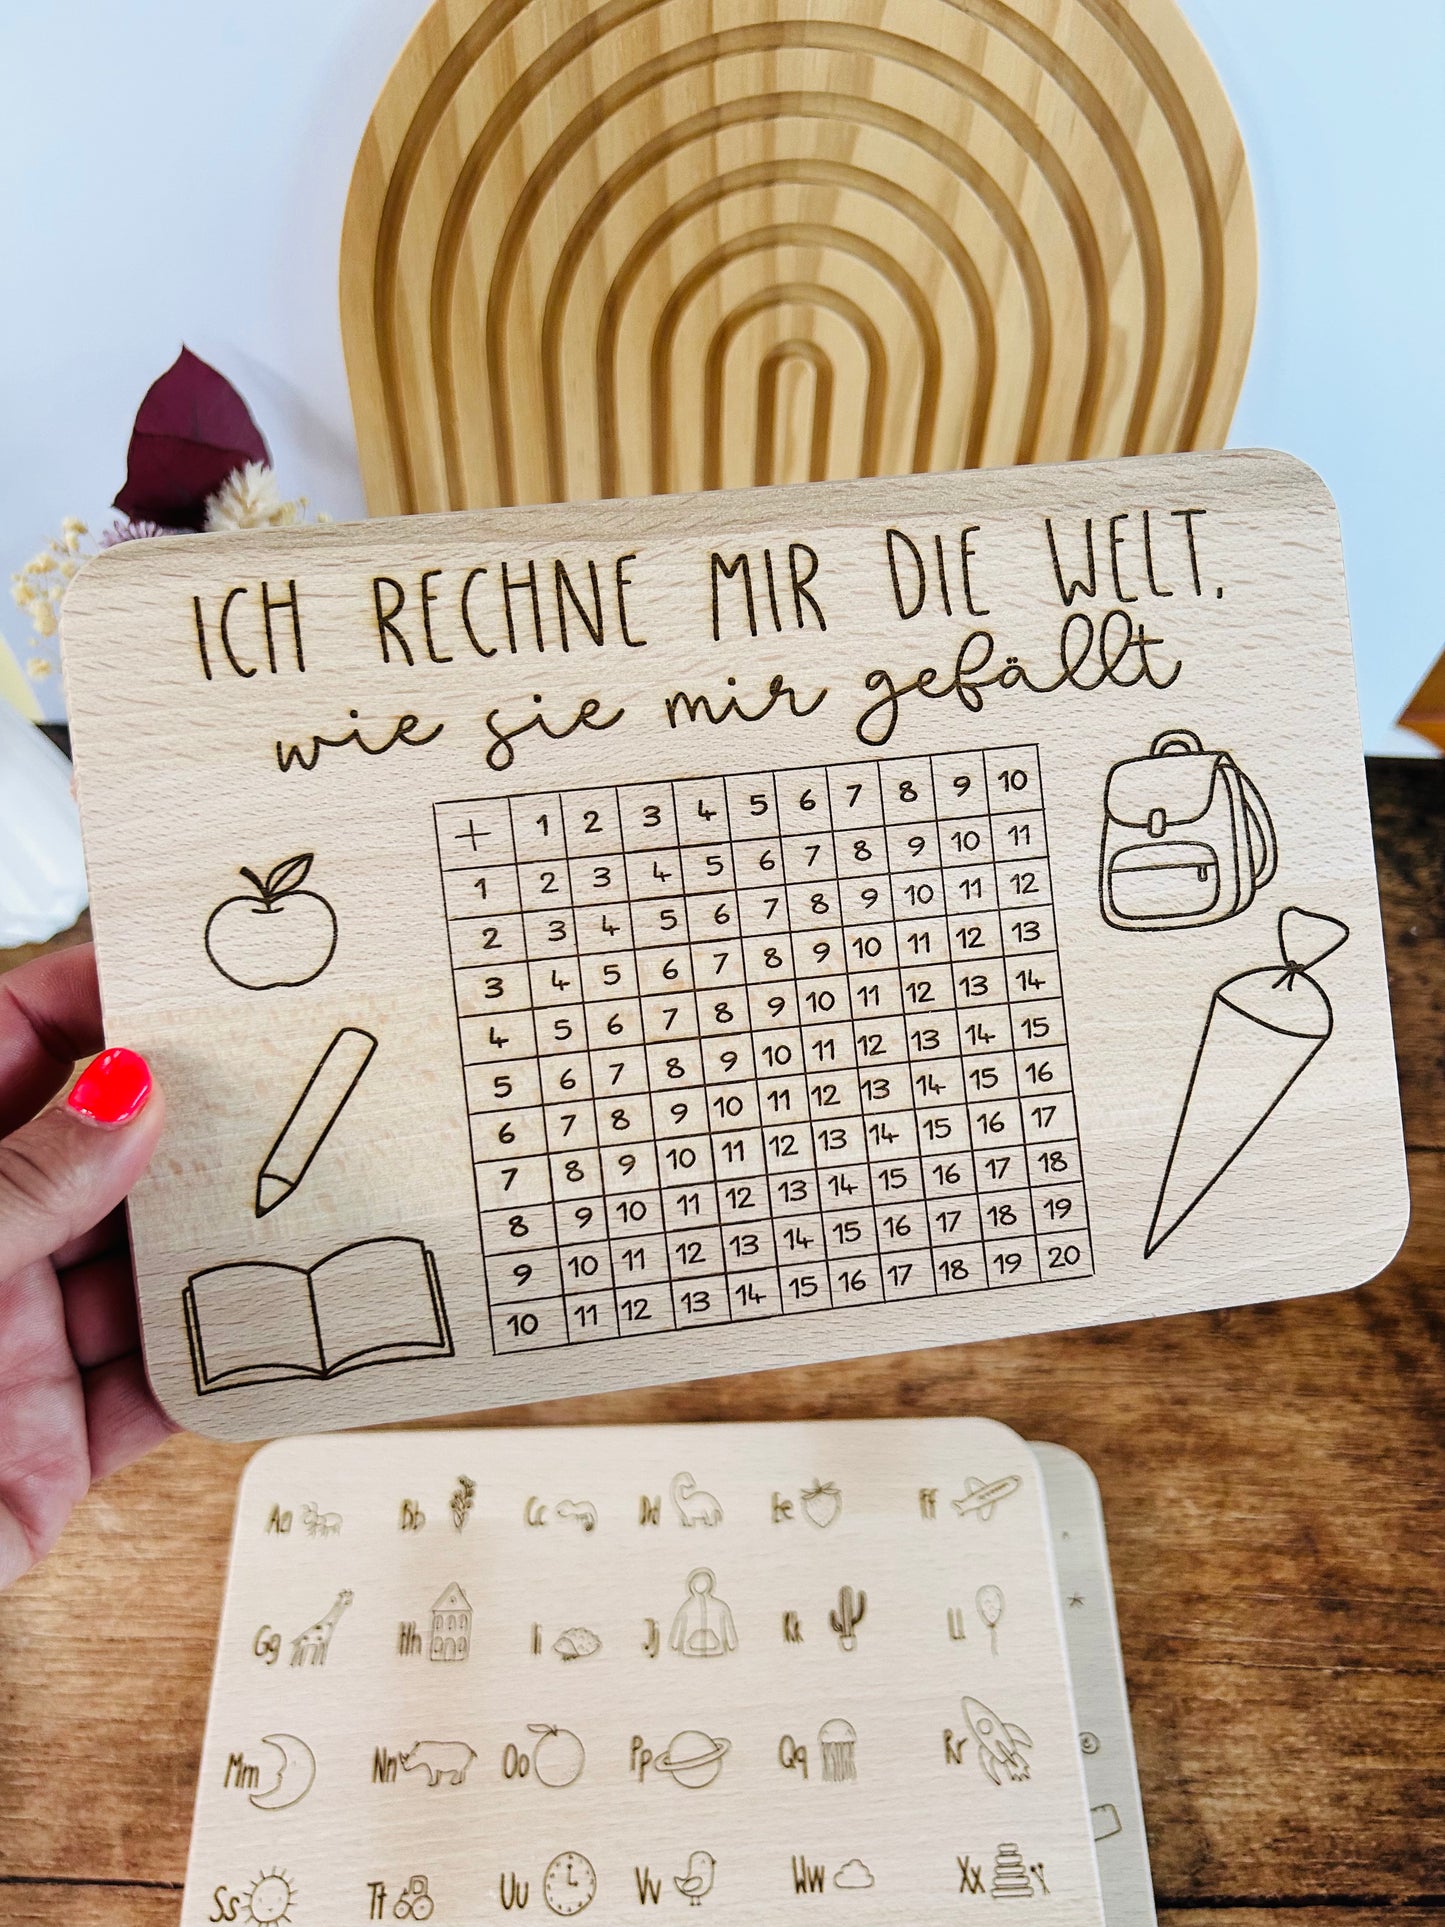 ICH RECHNE MIR DIE WELT,
wie sie mir gefällt
+ 1 2 3 4 5 6 7 8 9 10
1 2 3 4 5 6 7 8 9 10 11
2 3 4 5 6 7 8 9 10 11 12
3 4 5 6 7 8 9 10 11 12 13
4 5 6 7 8 9 10 11 12 13 14
5 6 7 8 9 10 11 12 13 14 15
6 7 8 9 10 11 12 13 14 15 16
7 8 9 10 11 12 13 14 15 16 17
8 9 10 11 12 13 14 15 16 17 18
9 10 11 12 13 14 15 16 17 18 19
10 11 12 13 14 15 16 17 18 19 20
Aa Bb Cc Dd Ee Ff
Gg Hh Ii Jj Kk Ll
Mm Nn Oo Pp Qq Rr
Ss Tt Uu Vv Ww Xx